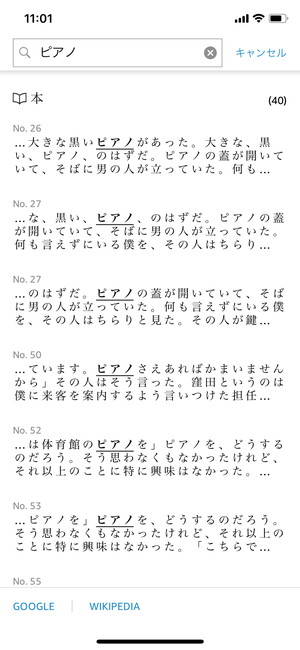 11:01
ピアノ
キャンセル
本
(40)
No. 26
…大きな黒いピアノがあった。大きな、黒
い、ピアノ、のはずだ。ピアノの蓋が開いて
いて、そばに男の人が立っていた。何も…
No. 27
…な、黒い、ピアノ、のはずだ。ピアノの蓋
が開いていて、そばに男の人が立っていた。
何も言えずにいる僕を、その人はちらり…
No. 27
…のはずだ。ピアノの蓋が開いていて、そば
に男の人が立っていた。何も言えずにいる僕
を、その人はちらりと見た。その人が鍵…
No. 50
…ています。ピアノさえあればかまいません
から」その人はそう言った。窪田というのは
僕に来客を案内するよう言いつけた担任…
No. 52
…は体育館のピアノを」ピアノを、どうする
のだろう。そう思わなくもなかったけれど、
それ以上のことに特に興味はなかった。…
No. 53
…ピアノを」ピアノを、どうするのだろう。
そう思わなくもなかったけれど、それ以上の
ことに特に興味はなかった。「こちらで…
No. 55
GOOGLE
WIKIPEDIA